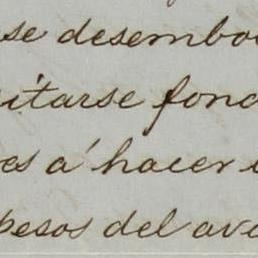 se desembo
itarse fond
es á hacer
pesos del ava